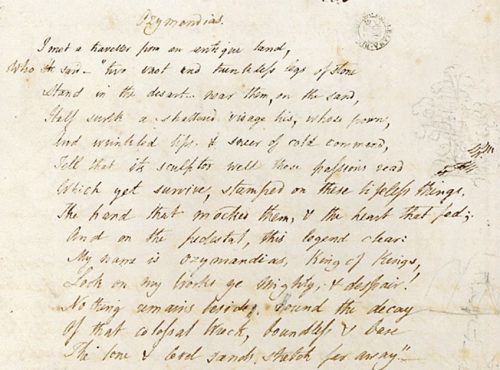 Ozymandias.
I met a traveler from an antique land,
Who said — "two vast and trunkless legs of stone
Stand in the desart near them, on the sand,
Half sunk a shattered visage lies, whose frown,
And wrinkled lips, & sneer of cold command,
Tell that its sculptor well those passions read
Which yet survive, stamped on these lifeless things,
The hand that mocked them, & the heart that fed;
And on the pedestal, this legend clear:
My name is Ozymandias, King of Kings,
Look on my works ye Mighty, & despair!
No thing remains beside. round the decay
Of that colossal Wreck, boundless & bare
The lone & level sands stretch far away."—